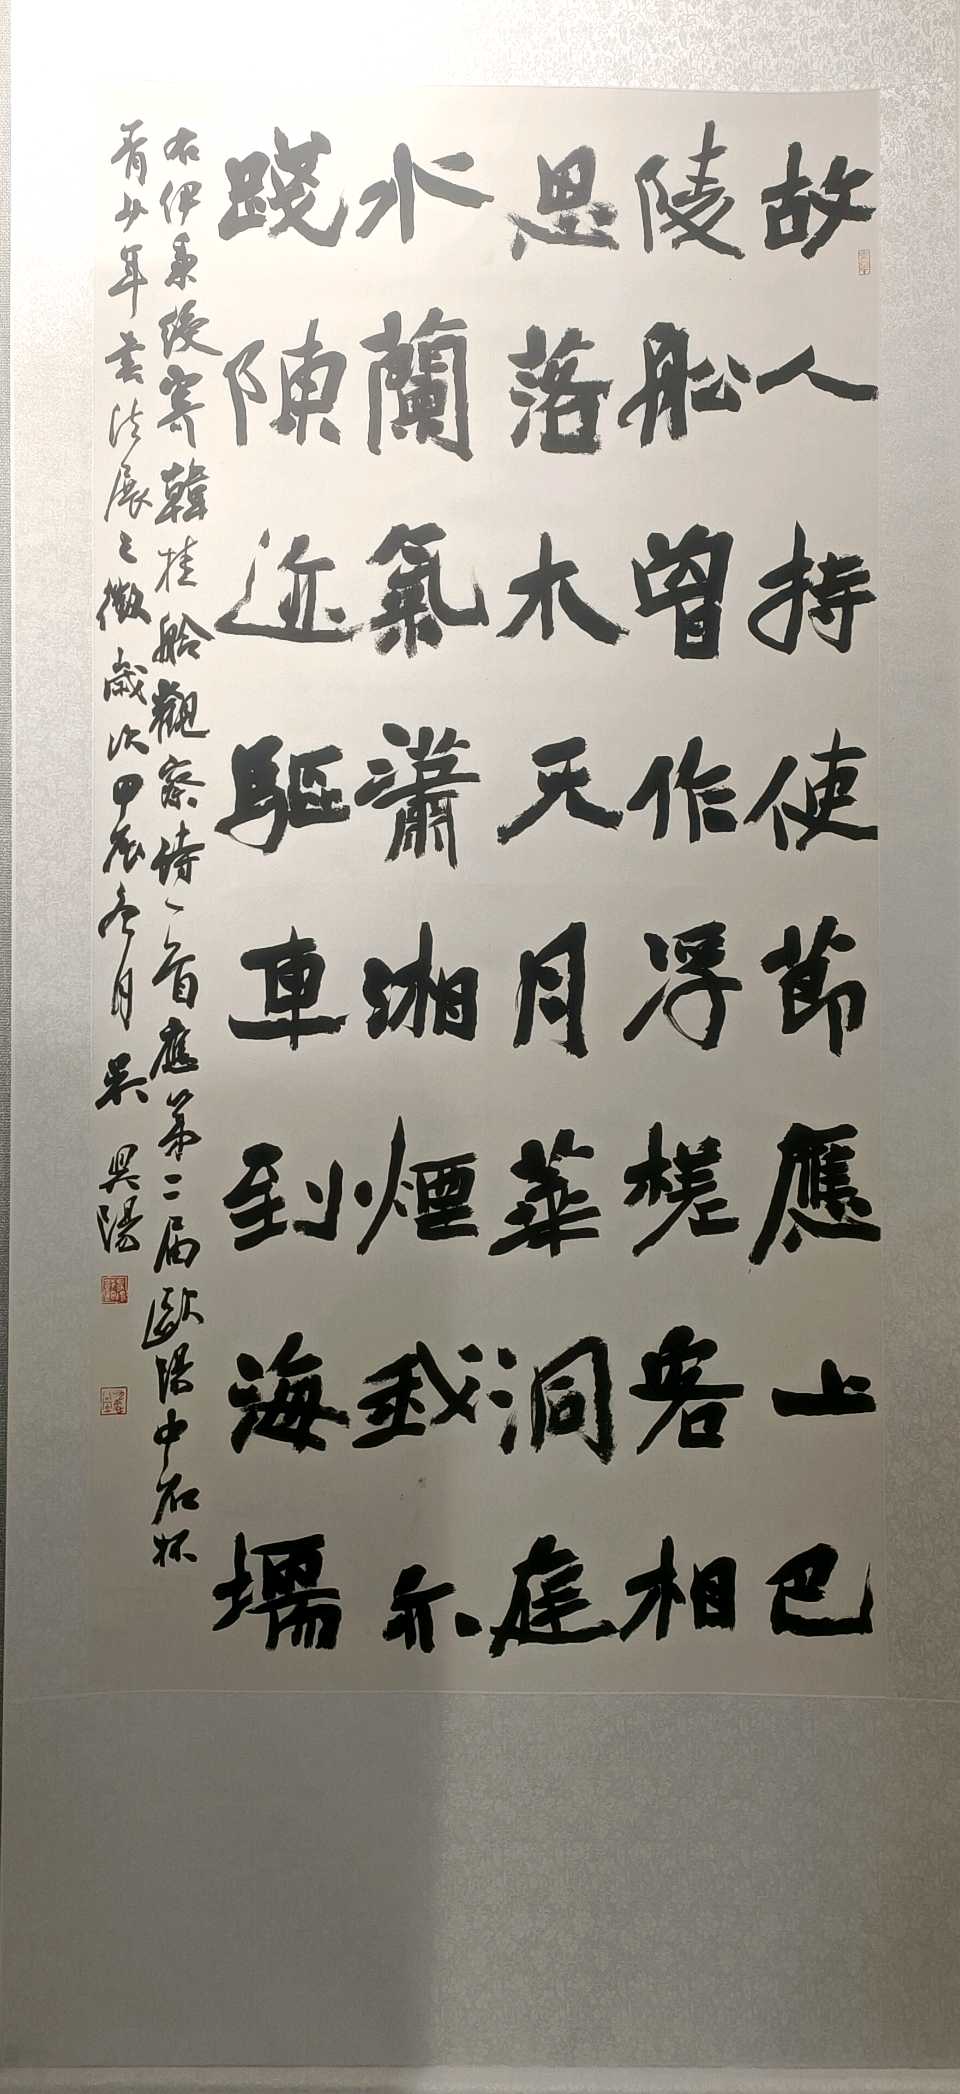 故人持使節應上巴
陵船曾作浮槎客相
思落木天月華洞庭
水蘭氣瀟湘煙我亦
踐陳迹驅車到海壖
右伊秉綬寄韓桂舲觀察詩一首應第二届歐陽中石杯
青少年書法展之徵歲次甲辰冬月吴昊陽